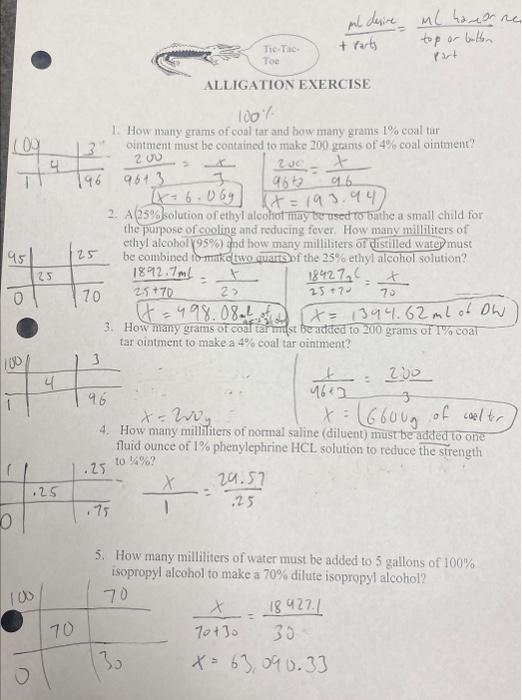 ml desire = ml have or
+ parts top or bottom
part
Tic-Tac-
Toe
ALLIGATION EXERCISE
100%
1. How many grams of coal tar and how many grams 1% coal tar
ointment must be contained to make 200 grams of 4% coal ointment?
100 3
4
1 96
200 = x
96+3 3
x = 6.06g
200 = x
96+3 96
x = 193.94
2. A 25% solution of ethyl alcohol may be used to bathe a small child for
the purpose of cooling and reducing fever. How many milliliters of
ethyl alcohol (95%) and how many milliliters of distilled water must
be combined to make two quarts of the 25% ethyl alcohol solution?
95 25
25
0 70
1892.7ml = x
25+70 25
x = 498.08 ml of
1892.7 = x
25+70 70
x = 1394.62 mL of DW
3. How many grams of coal tar must be added to 200 grams of 1% coal
tar ointment to make a 4% coal tar ointment?
100 3
4
1 96
x = 200g
x = 200
96+3 3
x = 6600g of coal tr
4. How many milliliters of normal saline (diluent) must be added to one
fluid ounce of 1% phenylephrine HCL solution to reduce the strength
to ¼%?
1 .25
.25
0 .75
x = 29.57
1 .25
5. How many milliliters of water must be added to 5 gallons of 100%
isopropyl alcohol to make a 70% dilute isopropyl alcohol?
100 70
70
0 30
x = 18927.1
70+30 30
x = 63,090.33